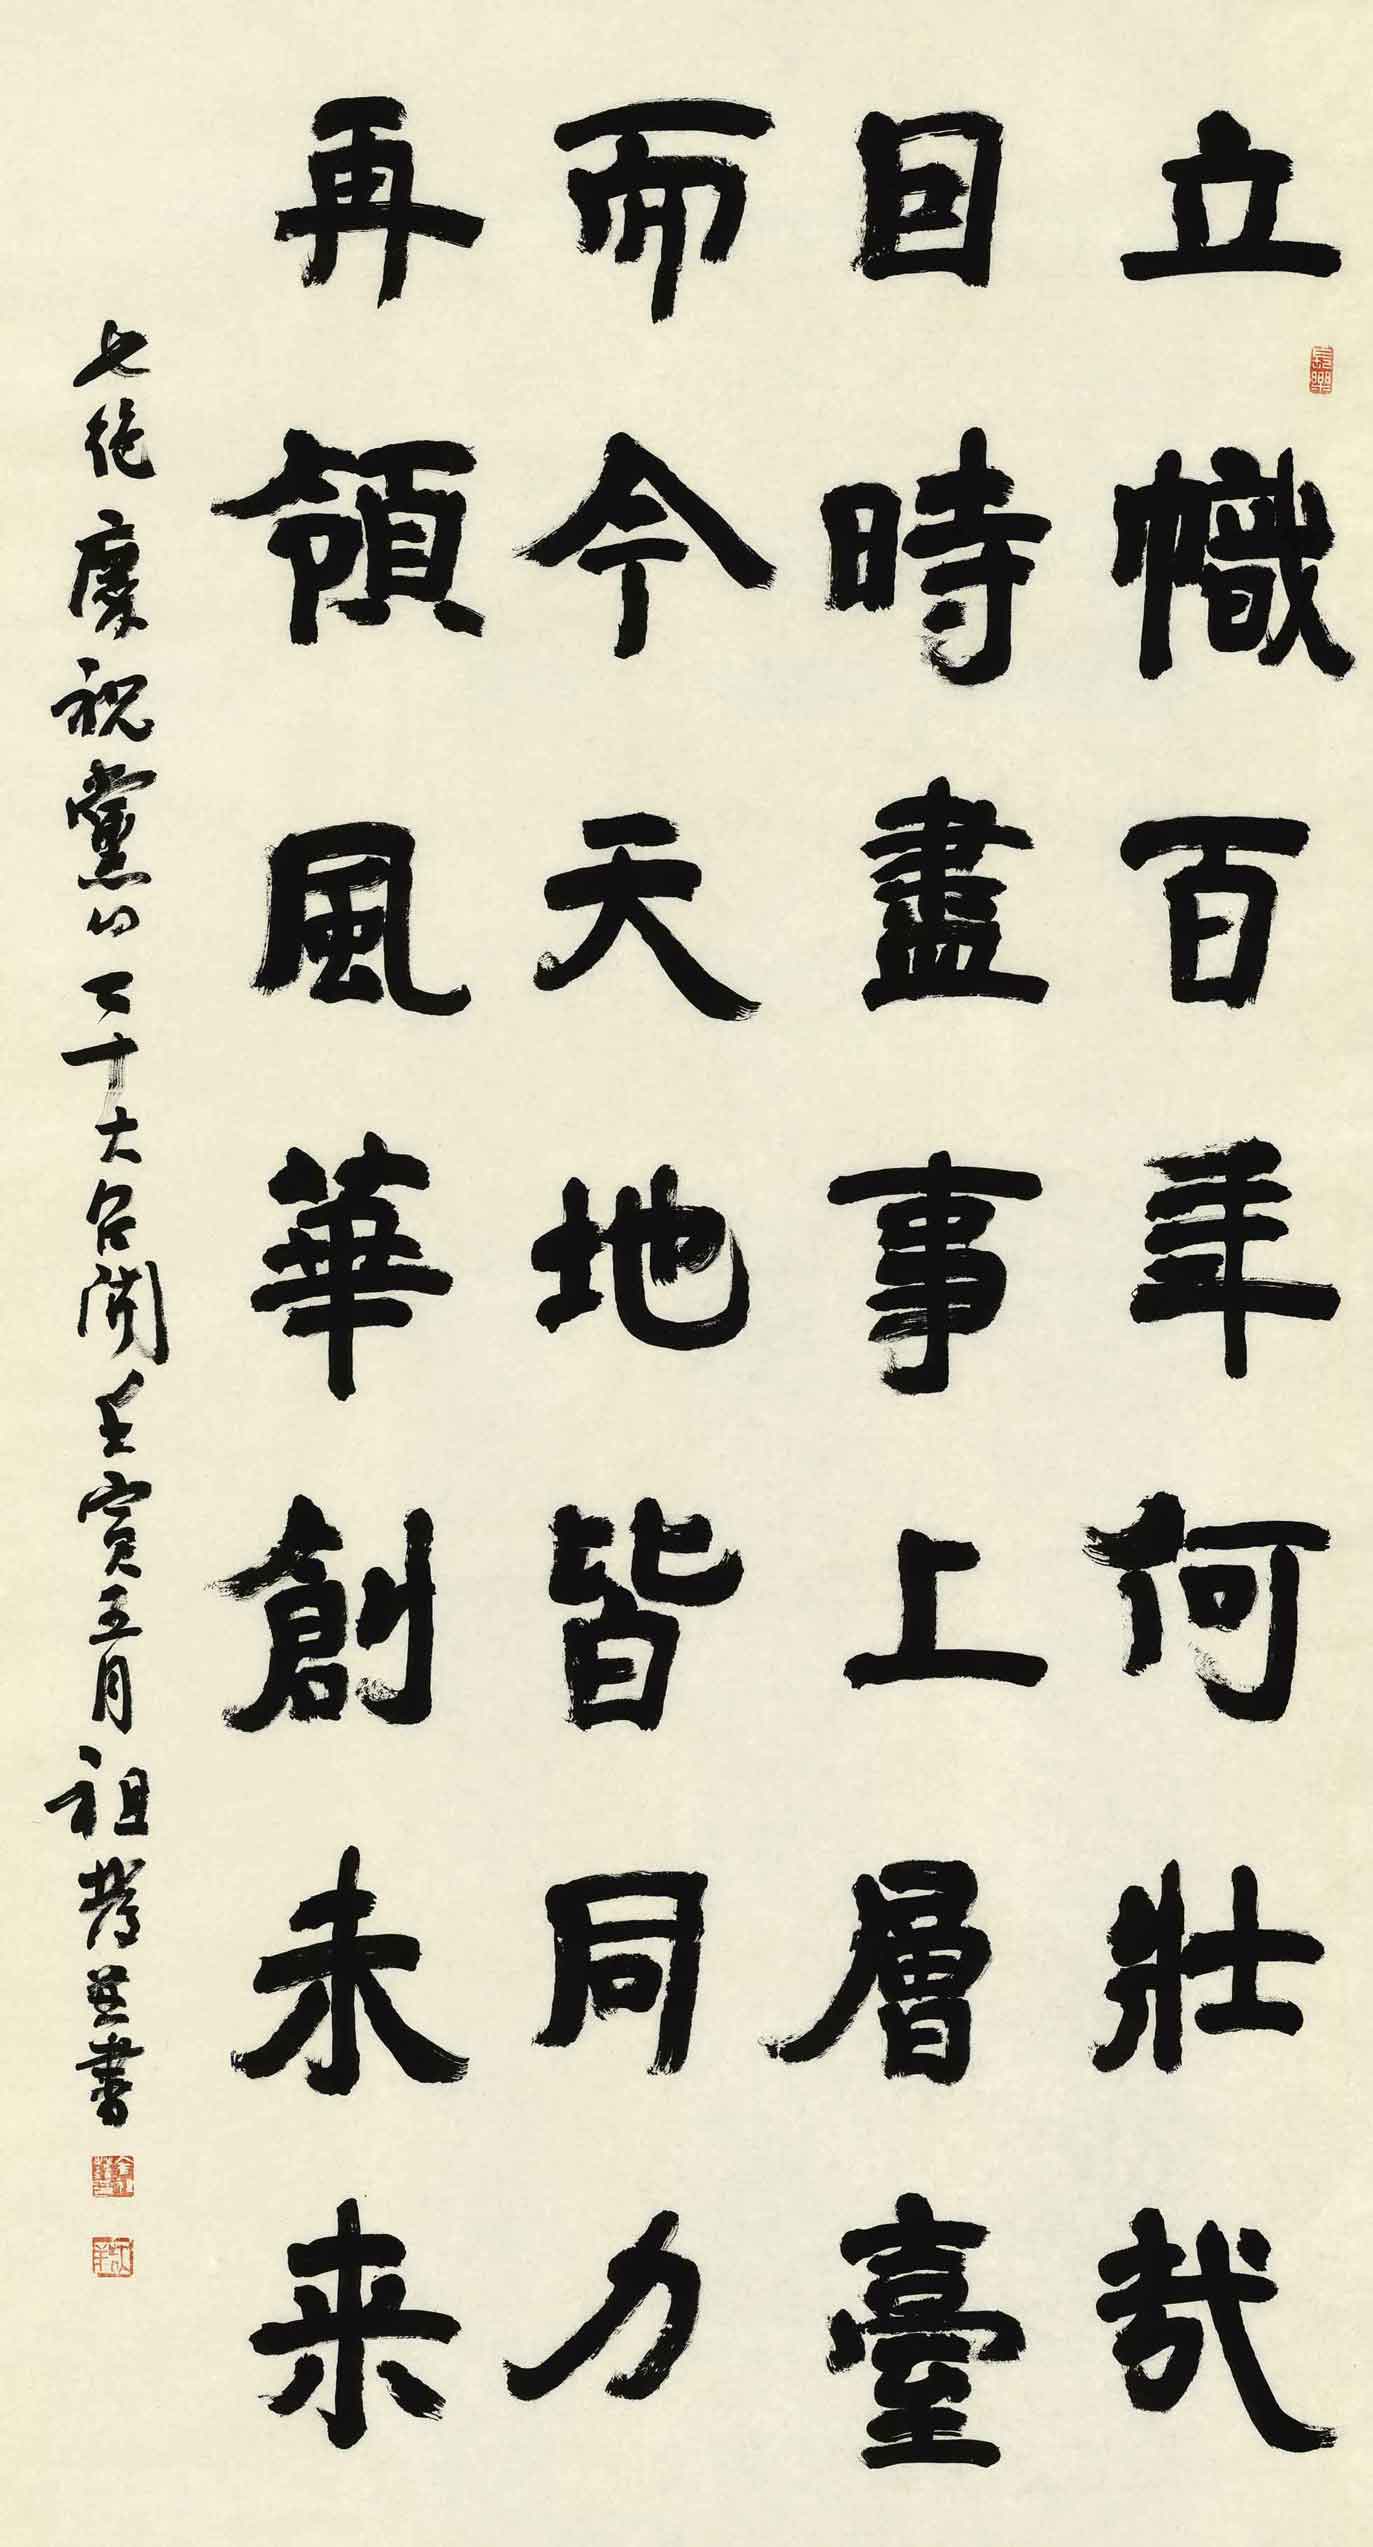 立幟百年何壯哉
囙時盡事上層臺
而今天地皆同力
再領風華創未来
七絕慶祝黨的二十大召開壬寅五月祖並書
長樂